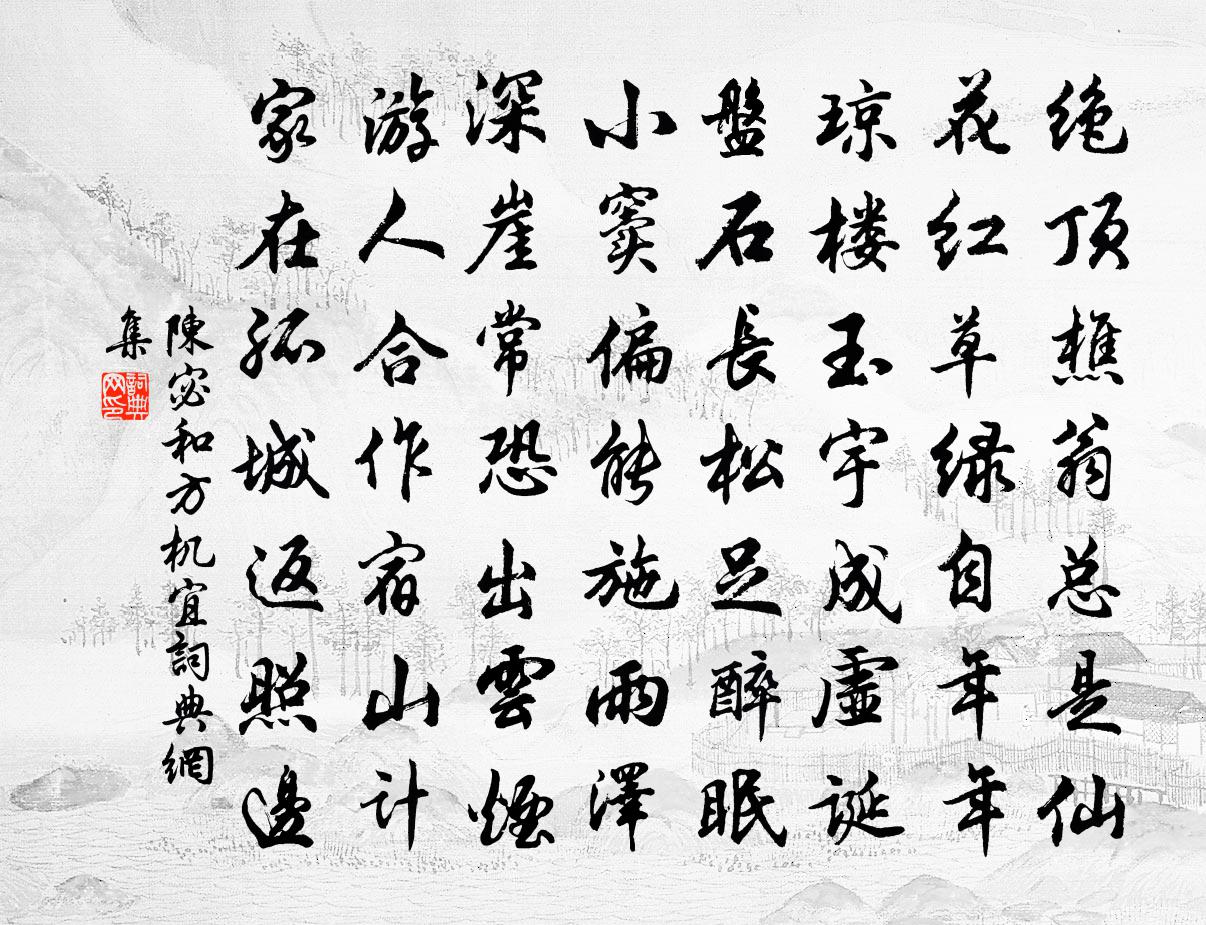 绝顶樵翁总是仙
花红草绿自年年
琼楼玉宇成虚诞
盤石長松足醉眠
小窦偏能施雨澤
深崖常恐出雲煙
游人合作宿山计
家在孤城返照邊
陳宓和方机宜詞典網
集
詞典网印